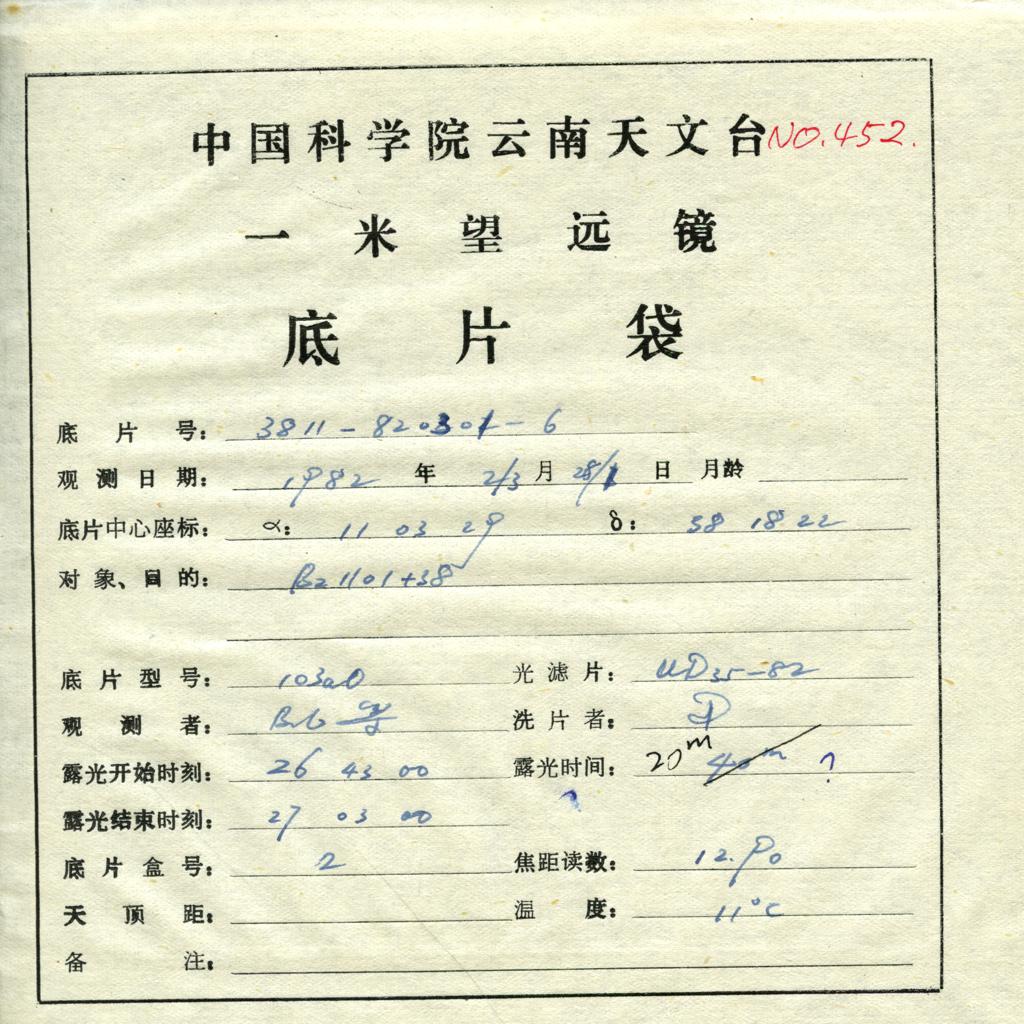 中国科学院云南天文台 NO.452.
一米望远镜
底片袋
底片号: 3811-820301-6
观测日期: 1982 年 2/3 月 28/1 日 月龄
底片中心座标: α: 11 03 29 δ: 38 18 22
对象、目的: B2 1101+38
底片型号: 103aO 光滤片: UD35-82
观测者: 洗片者:
露光开始时刻: 26 43 00 露光时间: 20m 40m ?
露光结束时刻: 27 03 00 ?
底片盒号: 2 焦距读数: 12.90
天顶距: 温度: 11°C
备注: